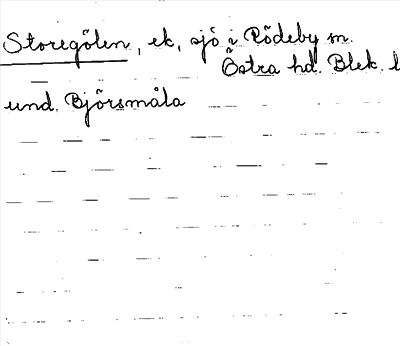 Storegölen, ek, sjö i Rödeby sn.
Östra hd. Blek. l
und. Björsmåla